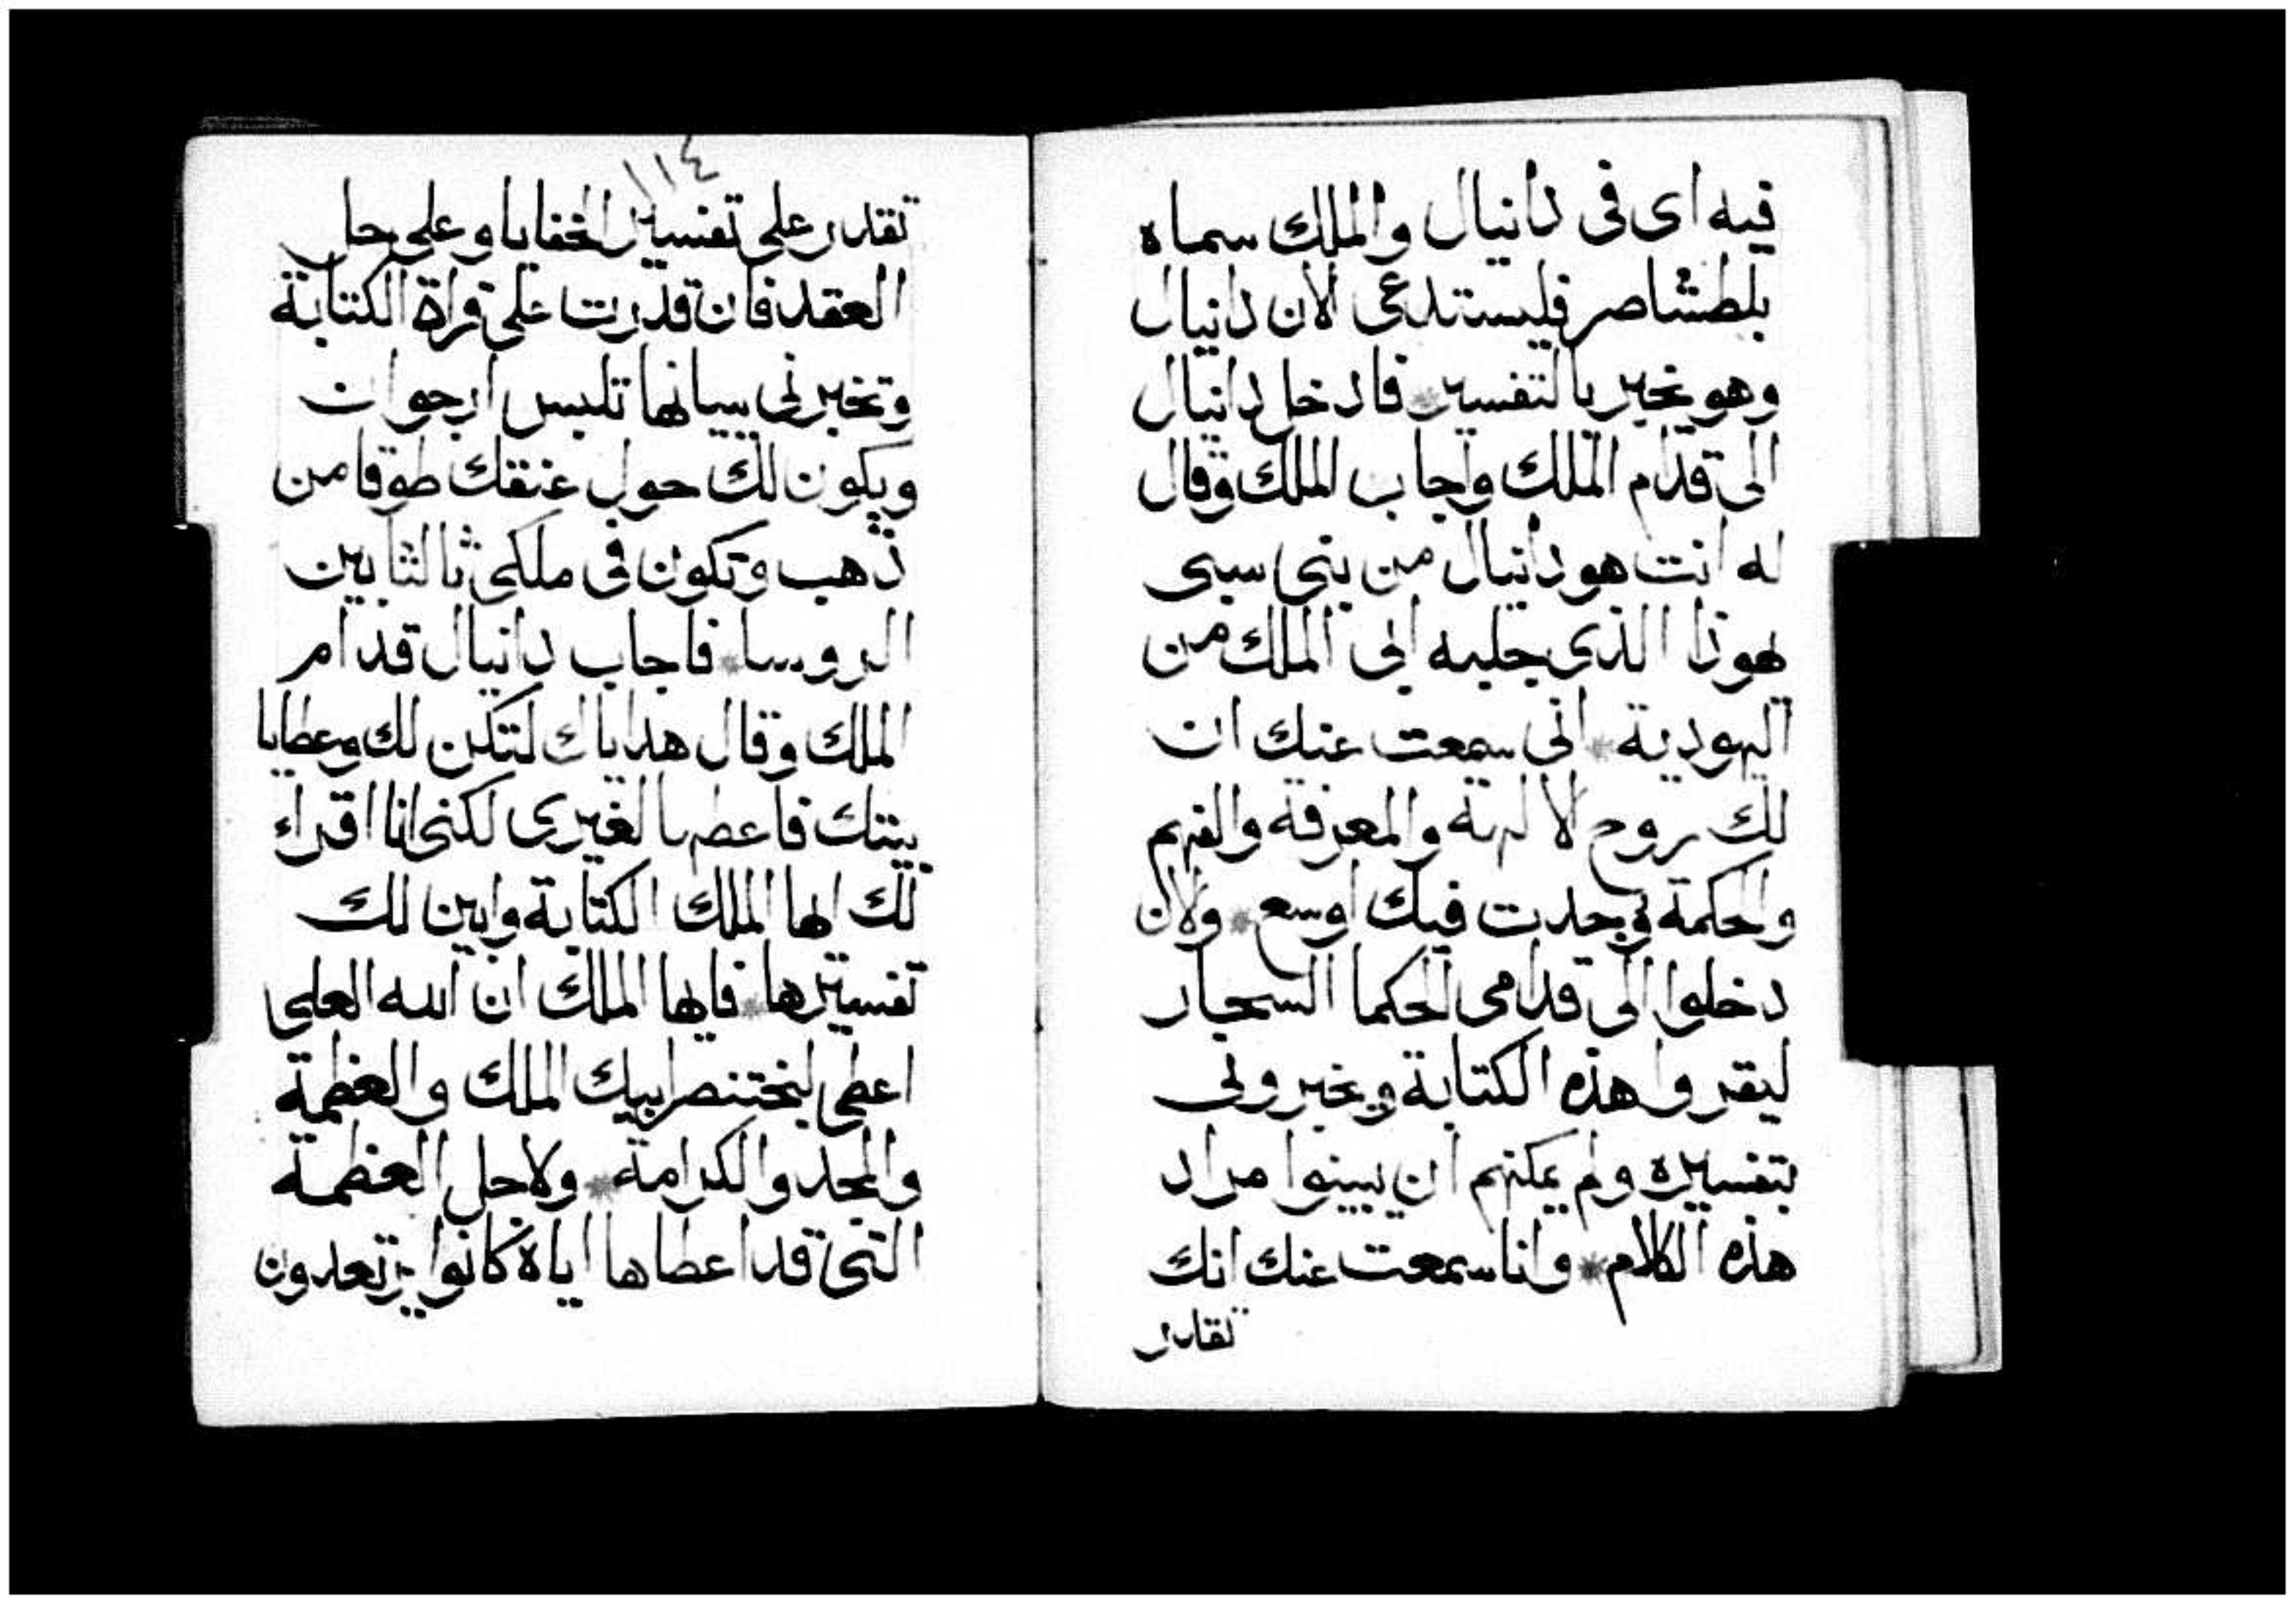 فيه اى فى دانيال والملك سماه
بلطشاصر فليستدعى الان دانيال
وهو يخبر بالتفسير * فادخل دانيال
الى قدام الملك واجاب الملك وقال
له انت هو دانيال من بنى سبى
يهوذا الذى جلبه ابى الملك من
اليهودية * انى سمعت عنك ان
لك روح الالهة والمعرفة والفهم
والحكمة توجدت فيك اوسع * والان
دخلوا الى قدامى الحكما السحار
ليقروا هذه الكتابة ويخبرونى
بتفسيره ولم يمكنهم ان يبينوا مراد
هذه الكلام * وانا سمعت عنك انك
تقدر
١١٤
تقدر على تفسير الخفايا وعلى حل
العقد فان قدرت على قراة الكتابة
وتخبرنى ببيانها تلبس ارجوان
ويكون لك حول عنقك طوقا من
ذهب وتكون فى ملكى ثالثا بين
الروسا * فاجاب دانيال قدام
الملك وقال هداياك لتكن لك وعطايا
بيتك فاعطها لغيرى لكنى انا اقراء
لك ايها الملك الكتابة وابين لك
تفسيرها * فايها الملك ان الله العلى
اعطى لبختنصر ابيك الملك والعظمة
والمجد والكرامة * ولاجل العظمة
التى قد اعطاها اياه كانوا يرتعدون